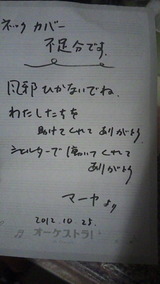 ネック カバー
不足分です。
風邪ひかないでね。
わたしたちを
助けてくれて ありがとう
シェルターで 働いてくれて
ありがとう
マーヤ より
2012.10.25.
オーケストラ!